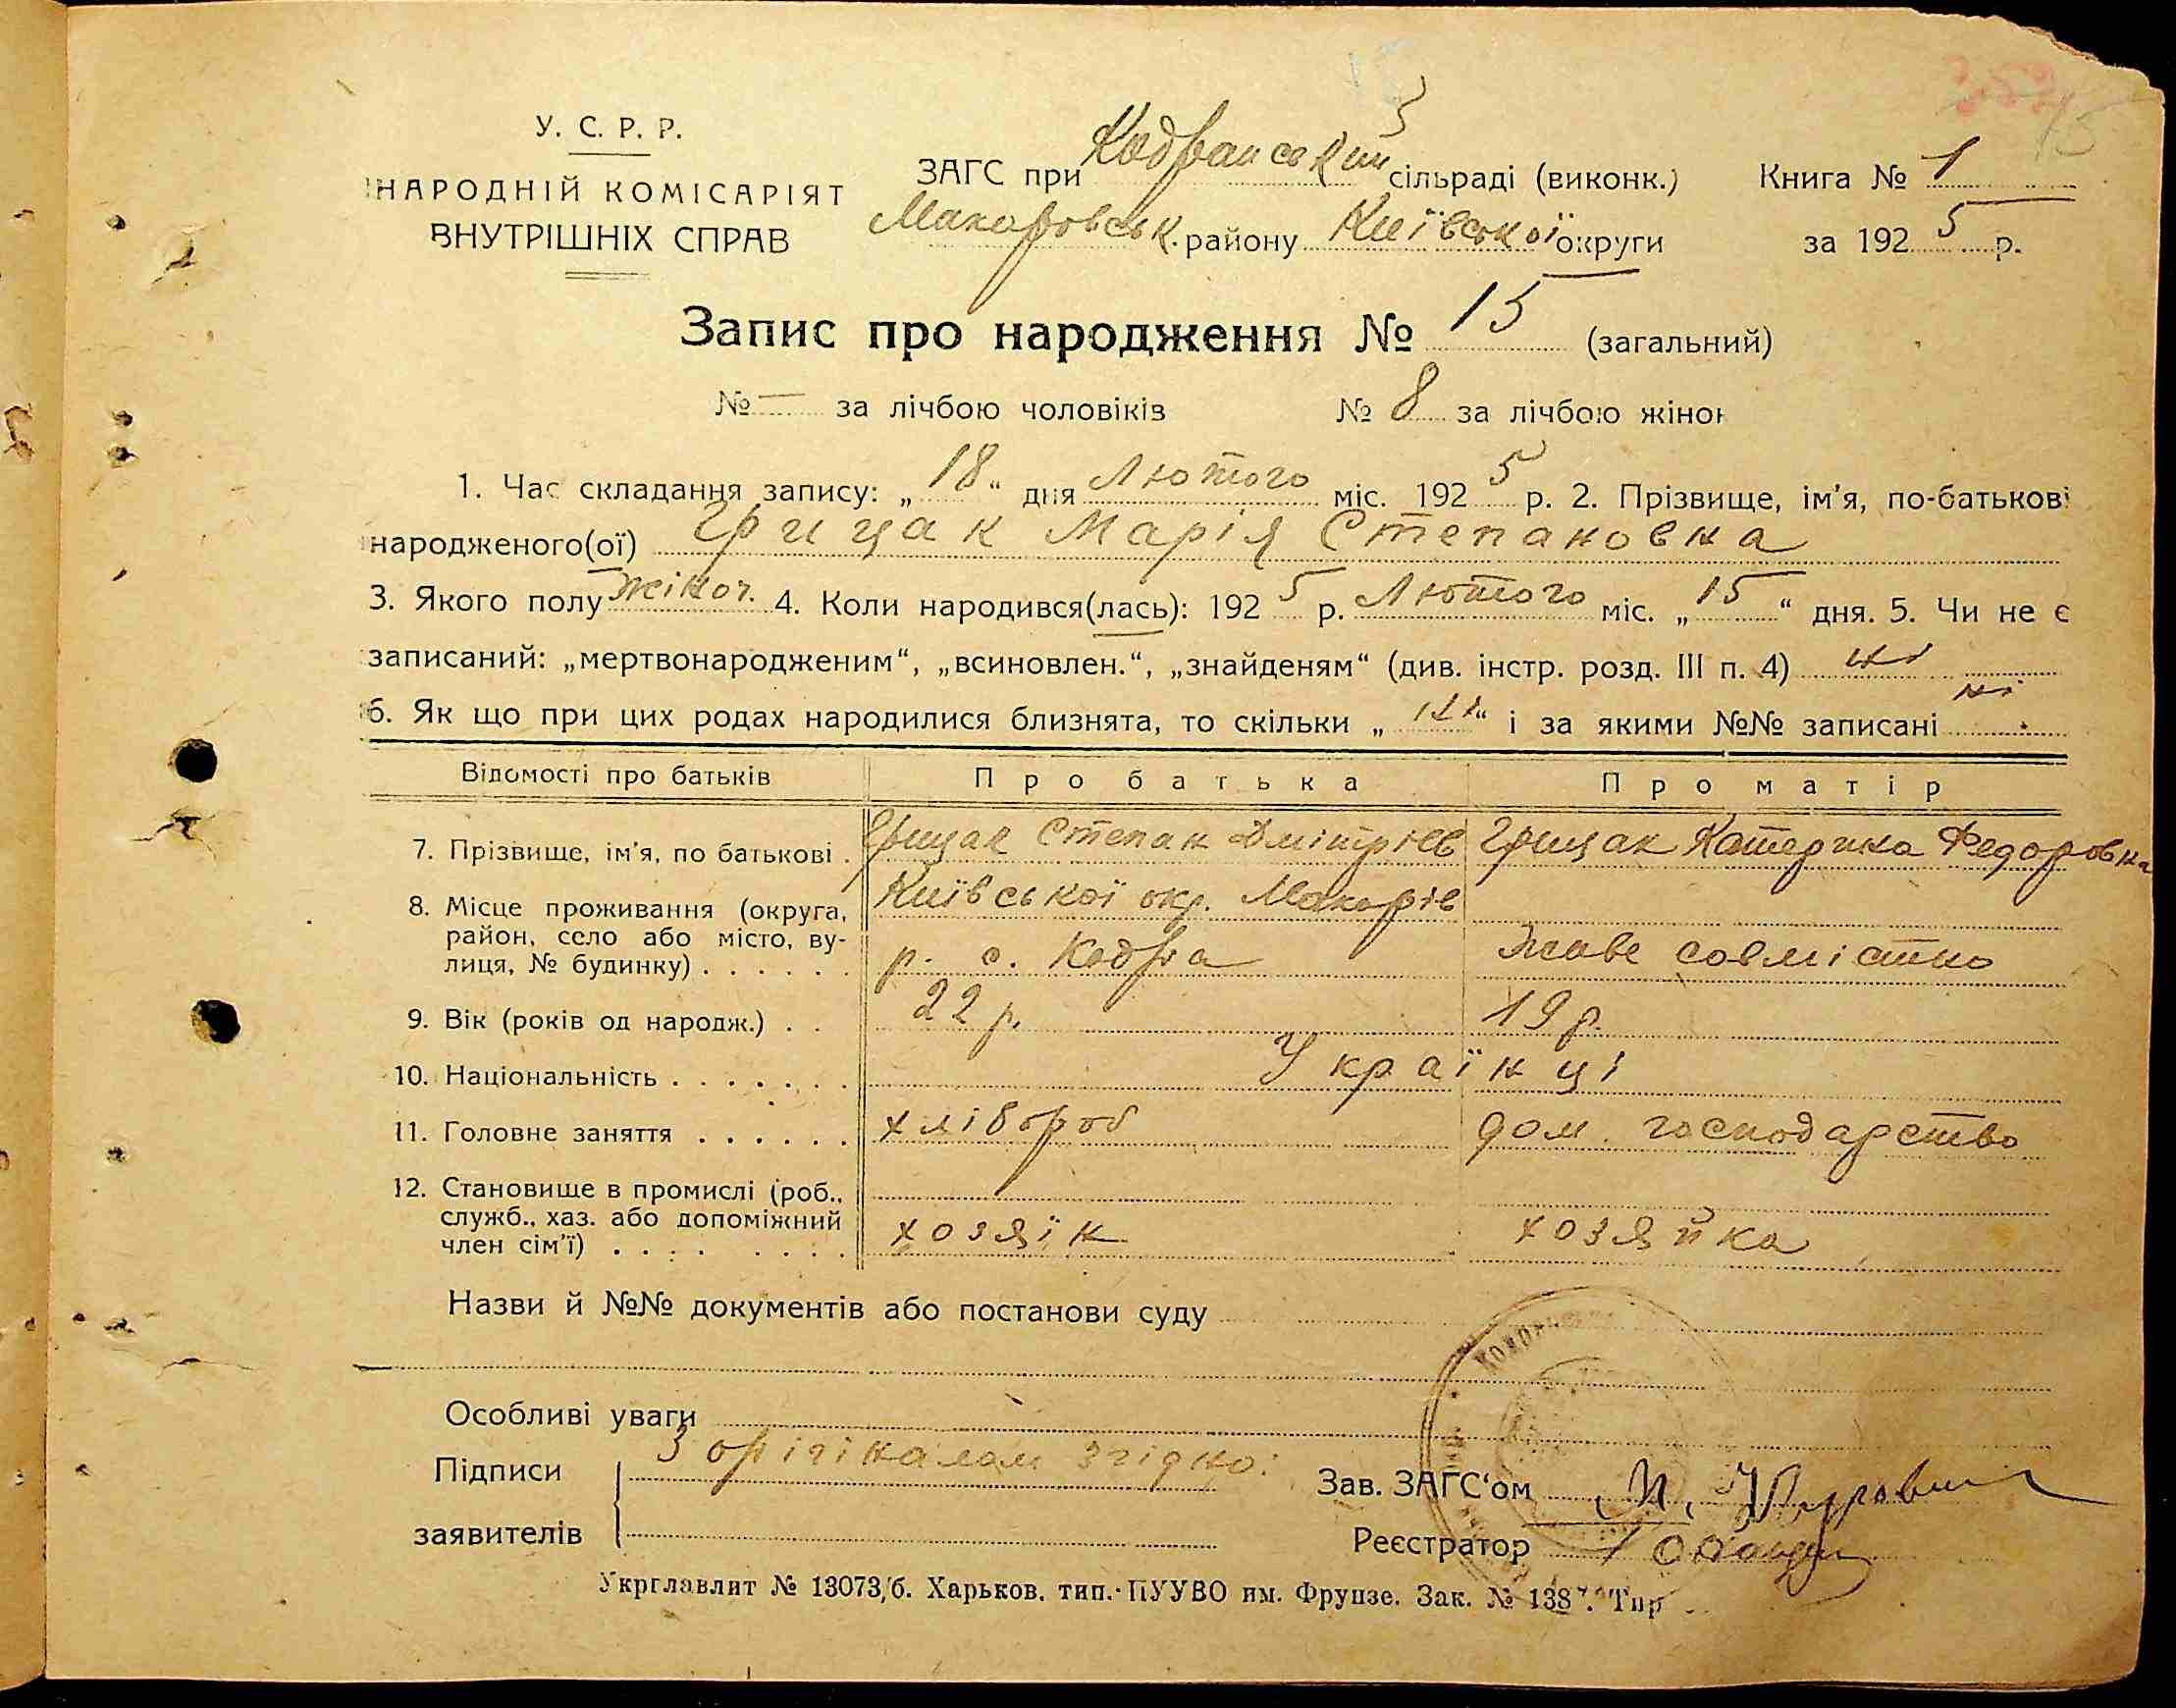 У. С. Р. Р.
НАРОДНІЙ КОМІСАРІЯТ
ВНУТРІШНІХ СПРАВ
ЗАГС при Кодранський сільраді (виконк.)
Макаровськ. району Київської округи
Книга № 1
за 1925 р.
15
Запис про народження № 15 (загальний)
№ — за лічбою чоловіків № 8 за лічбою жінок
1. Час складання запису: „18“ дня Лютого міс. 1925 р. 2. Прізвище, ім'я, по-батькові
народженого(ої) Грицак Марія Степановна
3. Якого полу жіноч. 4. Коли народився(лась): 1925 р. Лютого міс. „15“ дня. 5. Чи не є
записаний: „мертвонародженим“, „всиновлен.“, „знайденям“ (див. інстр. розд. III п. 4) ні
6. Як що при цих родах народилися близнята, то скільки „ні“ і за якими №№ записані ні.
Відомості про батьків Про батька Про матір
7. Прізвище, ім'я, по батькові . Грицак Степан Дмітрієв Грицак Катерина Федоровна
8. Місце проживання (округа, район, село або місто, вулиця, № будинку) . . . . . . Київської окр. Макарів
р. с. Кодра Живе совмістно
9. Вік (років од народж.) . . 22 р. 19 р.
10. Національність . . . . . . . Українці
11. Головне заняття . . . . . . хлібороб дом. господарство
12. Становище в промислі (роб., служб., хаз. або допоміжний член сім'ї) . . . . . . . . хозяїн хозяйка
Назви й №№ документів або постанови суду
Особливі уваги
Підписи З орігіналом згідно:
заявителів
Зав. ЗАГС‘ом
Реєстратор
Укрглавлит № 13073/б. Харьков. тип. ПУУВО им. Фрунзе. Зак. № 1387. Тир